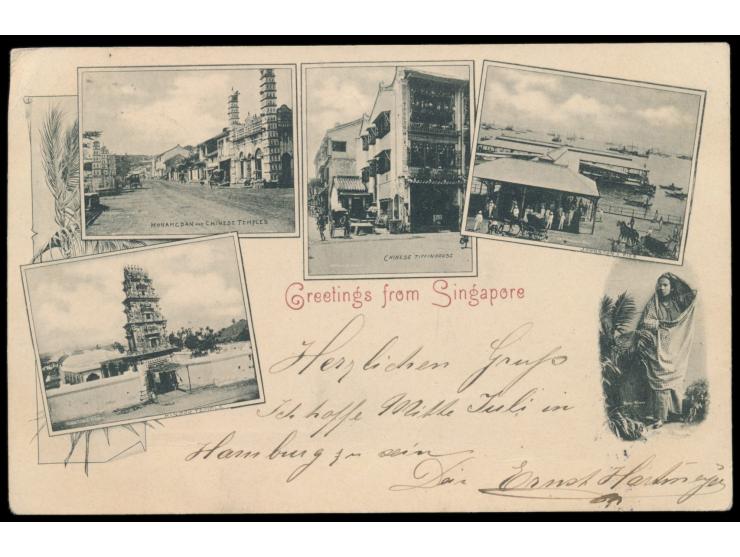 MOHAMEDAN AND CHINESE TEMPLES
CHINESE TIFFINHOUSE
HINDOO TEMPLE
Greetings from Singapore
Herzlichen Gruß
Ich hoffe Mitte Juli in
Hamburg zu sein
Dein Ernst Hartmeyer